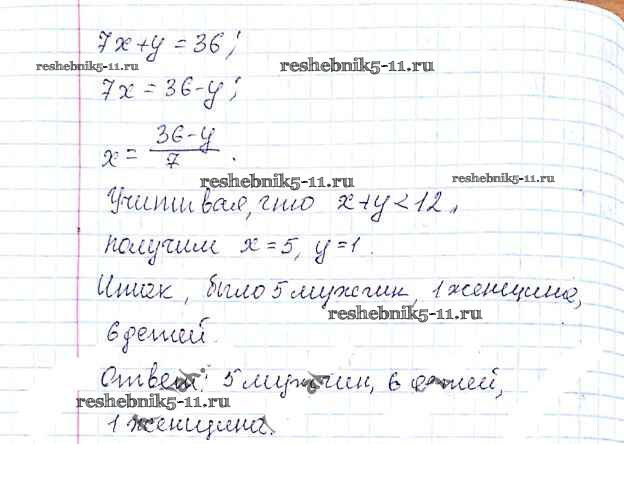 7x+y=36;
reshebnik5-11.ru
reshebnik5-11.ru
7x=36-y;
x=\frac{36-y}{7}.
reshebnik5-11.ru
reshebnik5-11.ru
Учитывая, что x+y<12,
получим x=5, y=1.
Итак, было 5 мужчин, 1 женщина,
reshebnik5-11.ru
6 детей.
Ответ: 5 мужчин, 6 детей,
reshebnik5-11.ru
1 женщина.